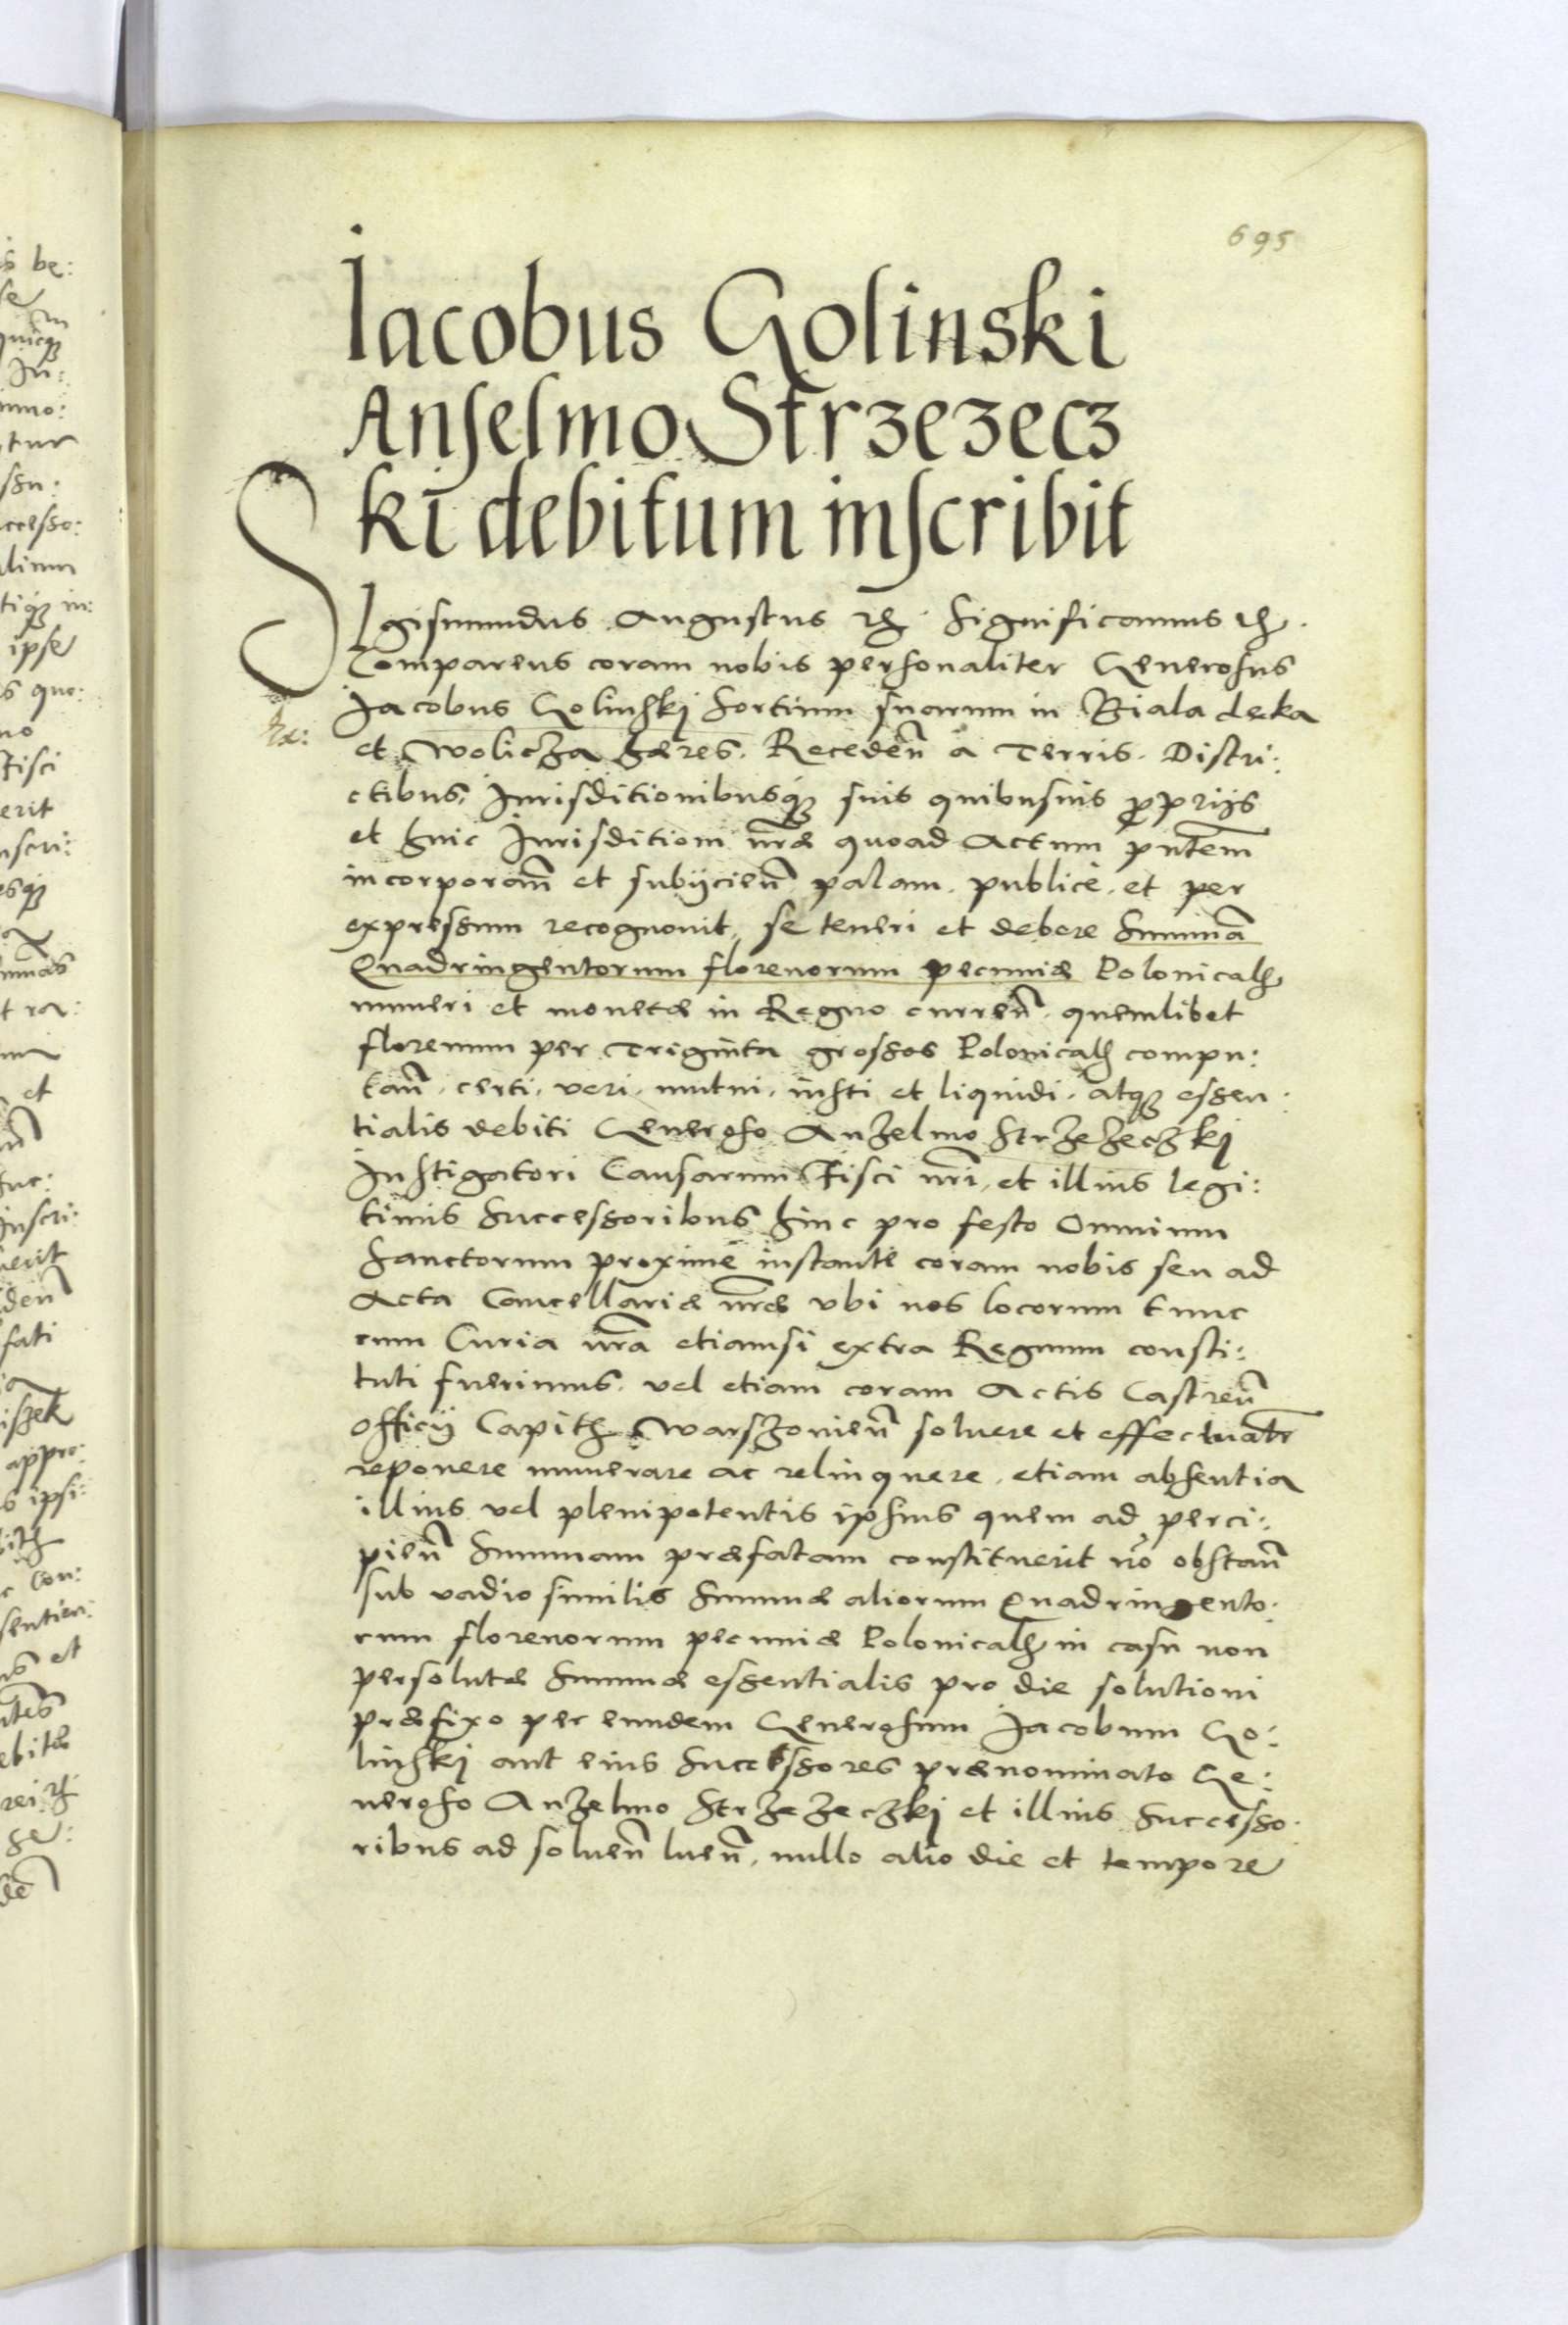 695
Iacobus Golinski
Anselmo Strzezecz
ki debitum inscribit
Sigismundus Augustus rc̃. Significamus rc̃.
Comparens coram nobis personaliter Generosus
Jacobus Golinskj Sortium suarum in Biala deka
et Wolicza hæres. Recedeñ a Terris. Distri:
ctibus, Jurisditionibusq́; suis quibusuis ꝓprijs
et huic Jurisditioni nr̃æ quoad Actum pñtem
incorporañ et subijcieñ palam, publice, et per
expressum recognouit, se teneri et debere Summã
Quadringentorum florenorum pecuniæ Polonicalis
numeri et monetæ in Regno curreñ. quemlibet
florenum per Triginta grossos Polonicales compu:
tañ. certi, veri, mutui, iusti et liquidi, atq; essen:
tialis debiti Generoso Anzelmo Strzezeczkj
Instigatori Causarum Fisci nr̃i, et illius legi:
timis Successoribus hinc pro festo Omnium
Sanctorum proxime instante coram nobis seu ad
Acta Cancellariæ nr̃æ vbi nos locorum tunc
cum Curia nr̃a etiamsi extra Regnum consti:
tuti fuerimus, vel etiam coram Actis Castreñ
Officij Capith Warszouieñ soluere et effectuatr̃
reponere numerare ac relinquere, etiam absentia
illius vel plenipotentis ipsius quem ad perci:
pieñ Summam præfatam constituerit nõ obstañ
sub vadio similis Summæ aliorum Quadringento:
rum florenorum pecuniæ Polonicalis in casu non
persolutæ Summæ essentialis pro die solutioni
præfixo per eundem Generosum Jacobum Go:
linskj aut eius Successores prænominato Ge:
neroso Anzelmo Strzezeczkj et illius Successo:
ribus ad soluen̄ lueñ, nullo alio die et tempore